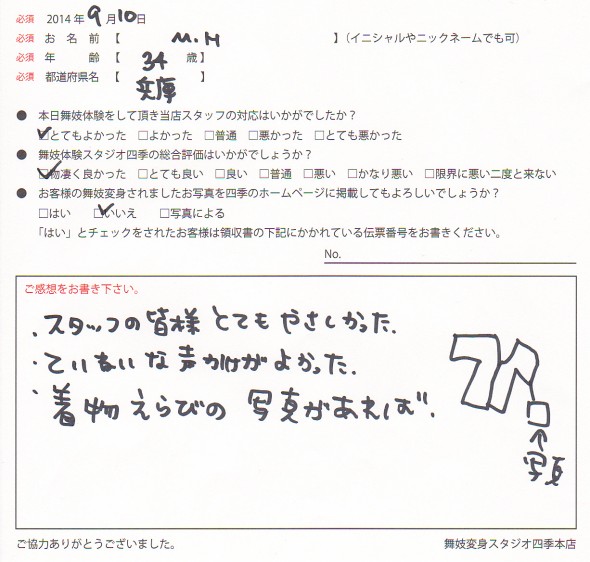 必須 2014年9月10日
必須 お名前【 M.M 】(イニシャルやニックネームでも可)
必須 年齢【 34 歳】
必須 都道府県名【 兵庫 】
● 本日舞妓体験をして頂き当店スタッフの対応はいかがでしたか?
☑とてもよかった □よかった □普通 □悪かった □とても悪かった
● 舞妓体験スタジオ四季の総合評価はいかがでしょうか?
☑物凄く良かった □とても良い □良い □普通 □悪い □かなり悪い □限界に悪い二度と来ない
● お客様の舞妓変身されましたお写真を四季のホームページに掲載してもよろしいでしょうか?
□はい ☑いいえ □写真による
「はい」とチェックをされたお客様は領収書の下記にかかれている伝票番号をお書きください。
No.
ご感想をお書き下さい。
・スタッフの皆様とてもやさしかった.
・ていねいな声かけがよかった.
・着物えらびの写真があれば.
写真
ご協力ありがとうございました。
舞妓変身スタジオ四季本店